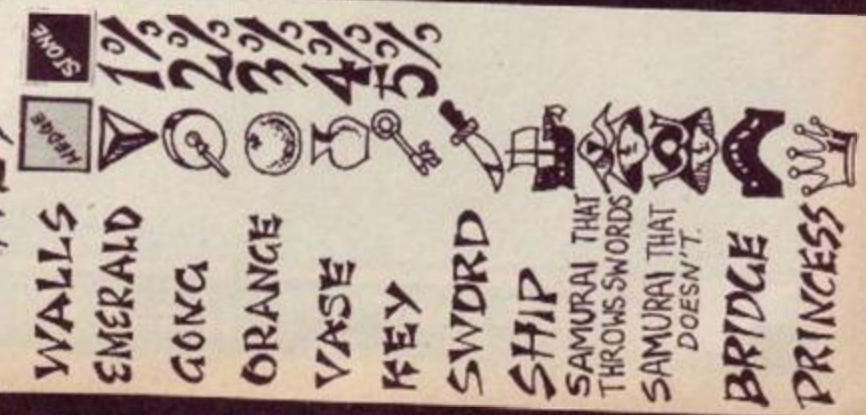 WALLS HEDGE STONE
EMERALD 1%
GONG 2%
ORANGE 3%
VASE 4%
KEY 5%
SWORD
SHIP
SAMURAI THAT
THROWS SWORDS
SAMURAI THAT
DOESN'T.
BRIDGE
PRINCESS